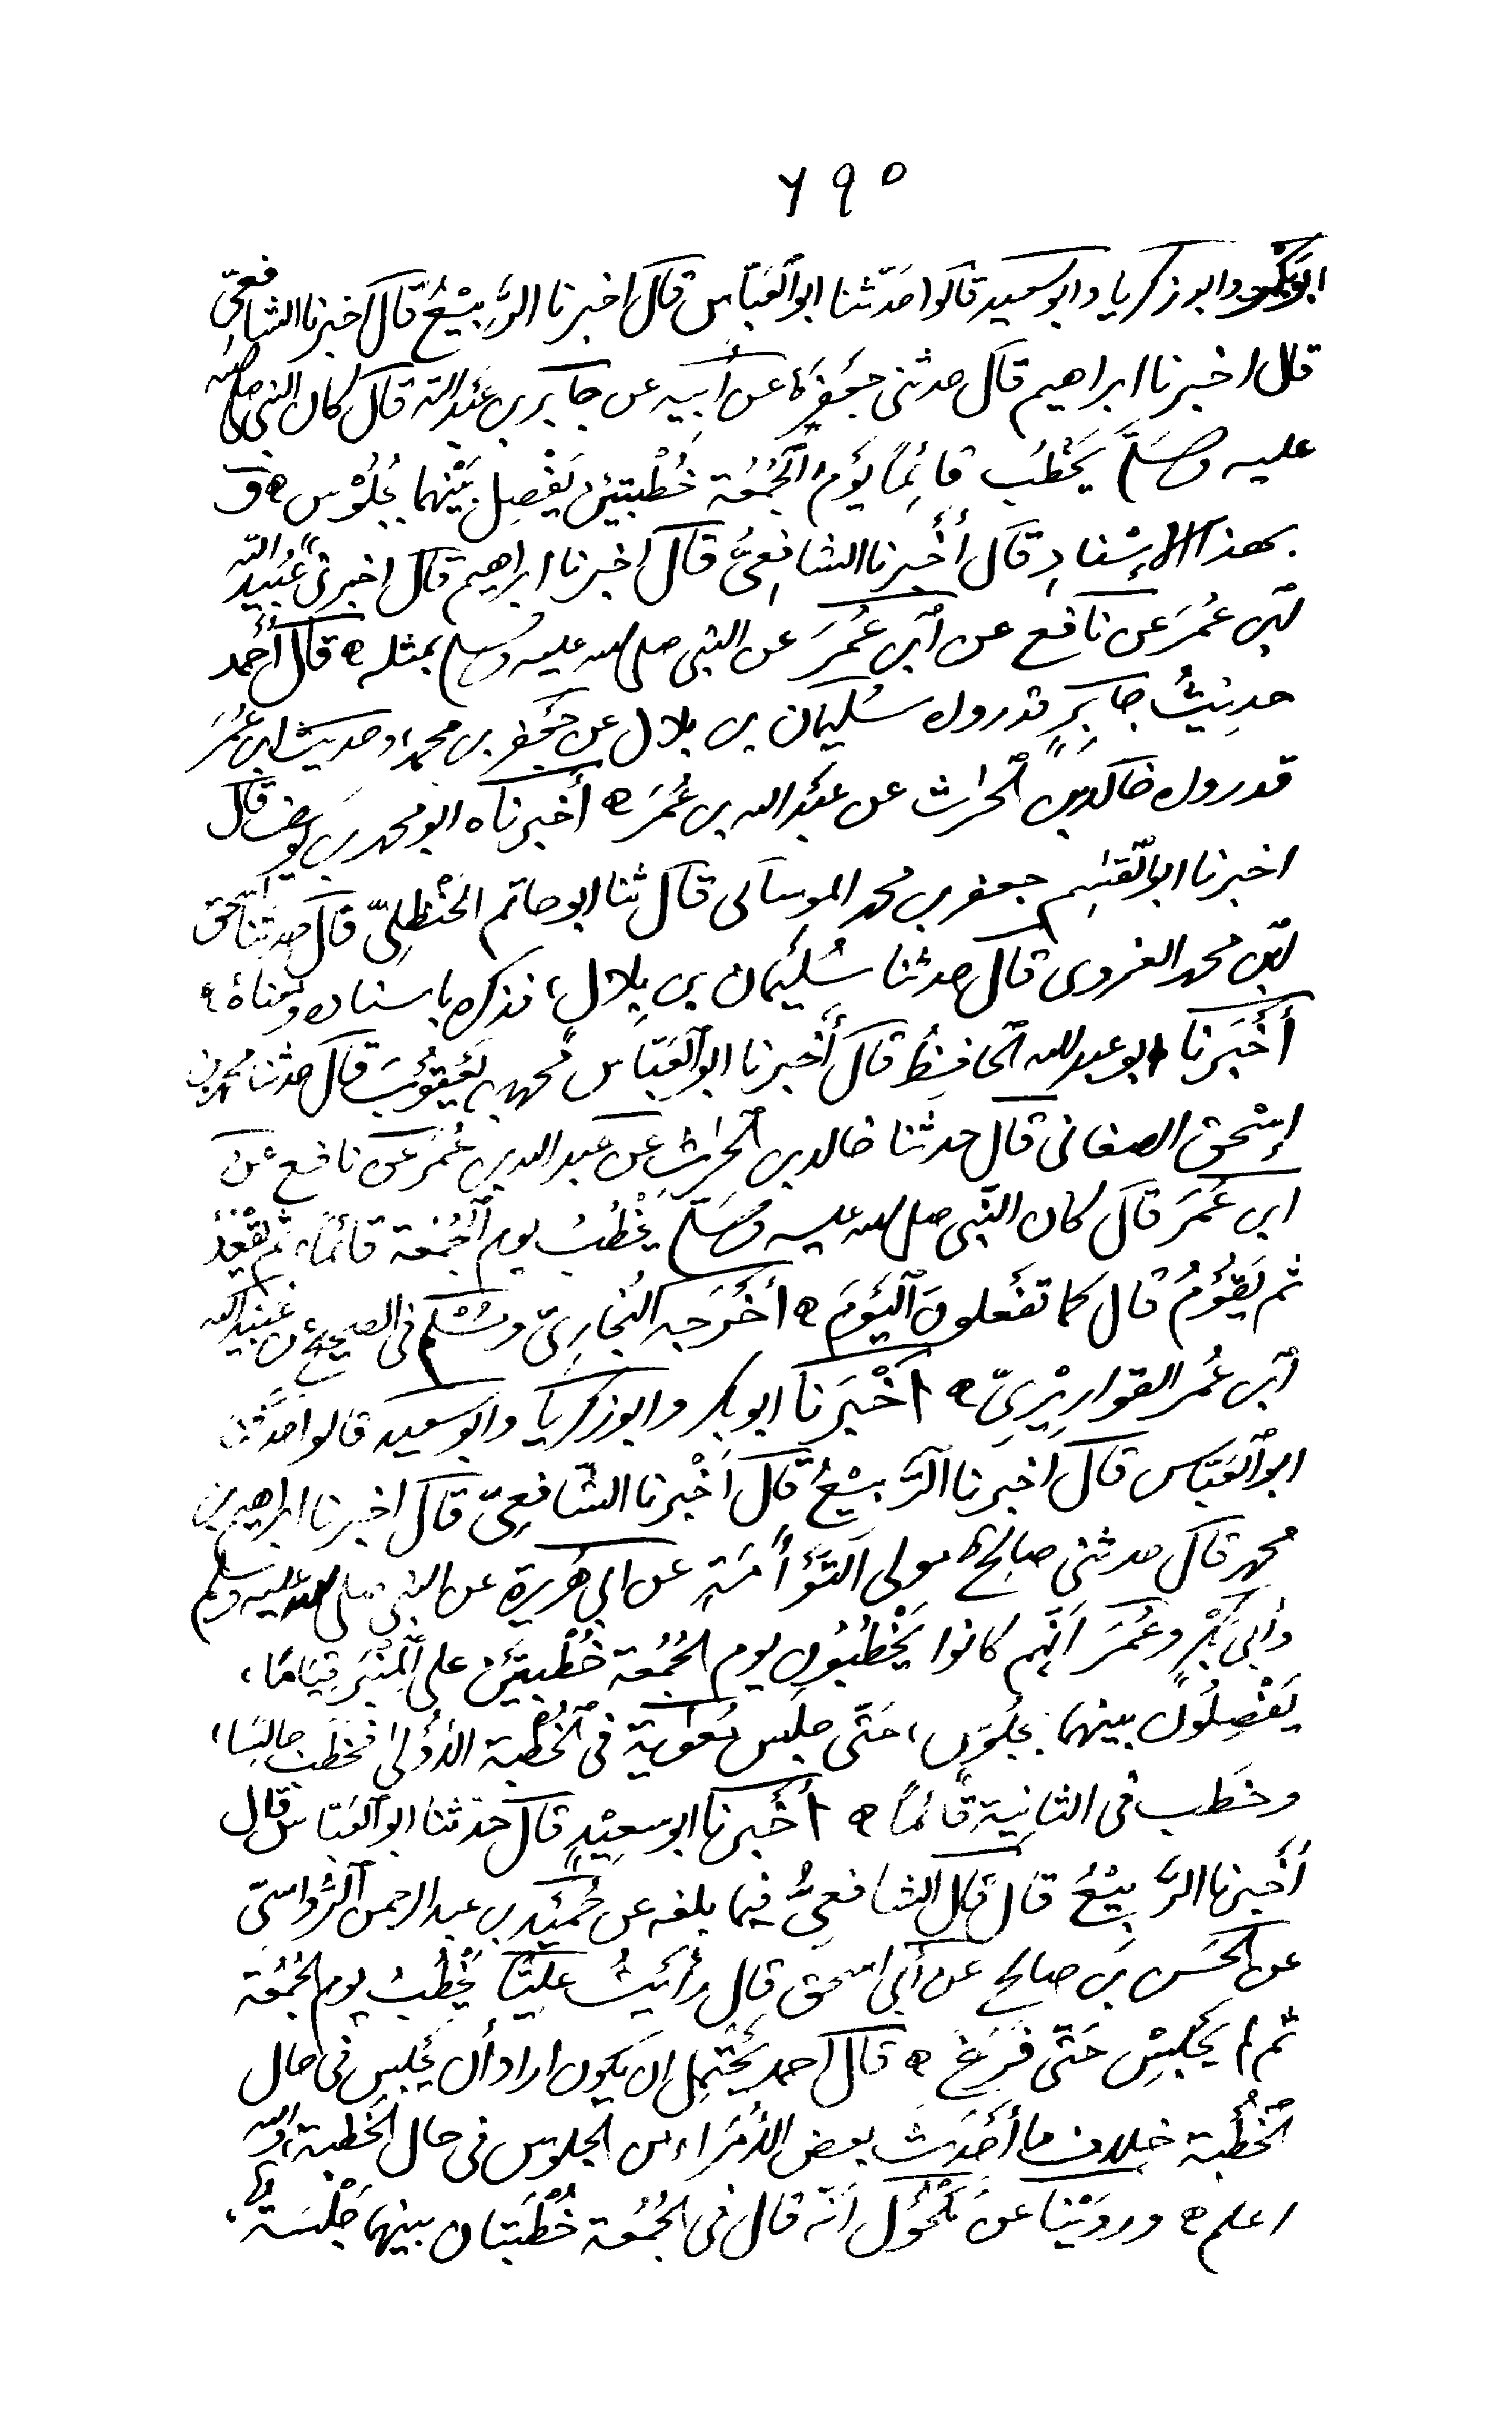 ٦٩٥
ابو بكر وابو زكريا وابو سعيد قالوا حَدّثنا ابو العَبّاس قال اخبرنا الرَّبِيْعُ قال اخبرنا الشافعىّ
قال اخبرنا ابراهيم قال حدثنى جعفرٌ عن أبيه عن جابر بن عَبْد الله قال كان النبى صلى الله
عليه وسَلَّم يَخْطُبُ قائِمًا يَوْمَ الجُمُعَة خُطْبتيْن يَفْصِل بَيْنهما بجُلُوْس ه و
بهذا الإسْنادِ قال أخْبرنا الشافعىُّ قال اخبرنا ابراهيم قال اخبرنى عُبَيْد الله
بْن عُمَرَ عَن نَافع عن ابْن عُمَرَ عن النبى صلى الله عليه وسلم بمثله ه قال أحمد
حديثُ جابرٍ قد رواه سُليمان بن بلال عن جَعْفر بن محمد، وحديث ابن عُمَرَ
قد رواه خالد بن الحٰرث عن عبيد الله بن عُمَرَ ه أخبرناه ابو محمد بن يوسف قال
اخبرنا ابو القٰسِم جعفر بن محمد الموسائى قال ثنا ابو حاتم الحَنْظَلِىّ قال حدثنا اسحق
بْن محمد الفروى قال حدثنا سُلَيْمان بن بِلالٍ، فذكره باسناده ومعناهُ ه
أخْبَرنا ابو عبد الله الحافِظُ قال أخْبرنا ابو العَبّاس محمد بن يَعْقُوْبَ قال حدثنا محمد بن
إسْحٰق الصغانى قال حدثنا خالد بن الحٰرثِ عَن عبيد الله بن عُمَرَ عَن نافع عَن
ابن عُمَرَ قال كان النَّبى صلى الله عليه وسَلّم يَخْطُبُ يوم الجُمُعَة قائمًا، ثم يَقْعُدُ
ثم يَقُوْمُ قال كما تَفْعلونَ اليَوْمَ ه أخْرَجه البُخارىّ ومُسْلم فى الصحيح عن عُبَيْد الله
ابْن عُمر القواريْرىّ ه اخْبَرنا ابو بكر وابو زكريا وابو سعيد قالوا حدَّثنا
ابو العَبّاس قال اخبرنا الرَّبيْعُ قال أخْبرنا الشافعىّ قال اخبرنا ابراهيم بن
محمد قال حدثنى صالحٌ مولى التَّوْأَمَةِ عن ابى هُريرة عن النبى صلى الله عليه وسلم
وابى بَكْرٍ وعُمَرَ أنّهم كانوا يَخْطُبُون يوم الجُمُعَة خُطْبَتَيْن على المِنْبَر قِيَامًا،
يَفْصِلُونَ بينهما بجُلوسٍ، حَتّى جلَس مُعٰوية فى الخُطْبة الأُوْلى فخطَب جالسًا،
وخَطَب فى الثانية قائمًا ه أخْبرنا ابو سعِيْدٍ قال حدثنا ابو العَبّاس قال
أخْبرنا الرَّبيْعُ قال قال الشافعىُّ فيما بلغه عن حُمَيْد بن عبد الرحمن الرُّواسىّ
عن الحَسَن بن صالح عن أبى اسحٰق قال رأيتُ علِيًّا يَخْطُبُ يوم الجُمُعَة
ثم لم يَجْلِسْ حَتّى فَرَغَ ه قال احمد يَحْتَمِل ان يكون اراد أن يَجْلس فى حال
الخُطْبة خلاف ما أحْدَث بعض الأُمَرَاء من الجلوس فى حال الخُطبة والله
اعلم ه وروَيْنا عن مَكْحُوْل أنّه قال فى الجُمُعَة خُطْبَتان بينهما جَلْسَةٌ،